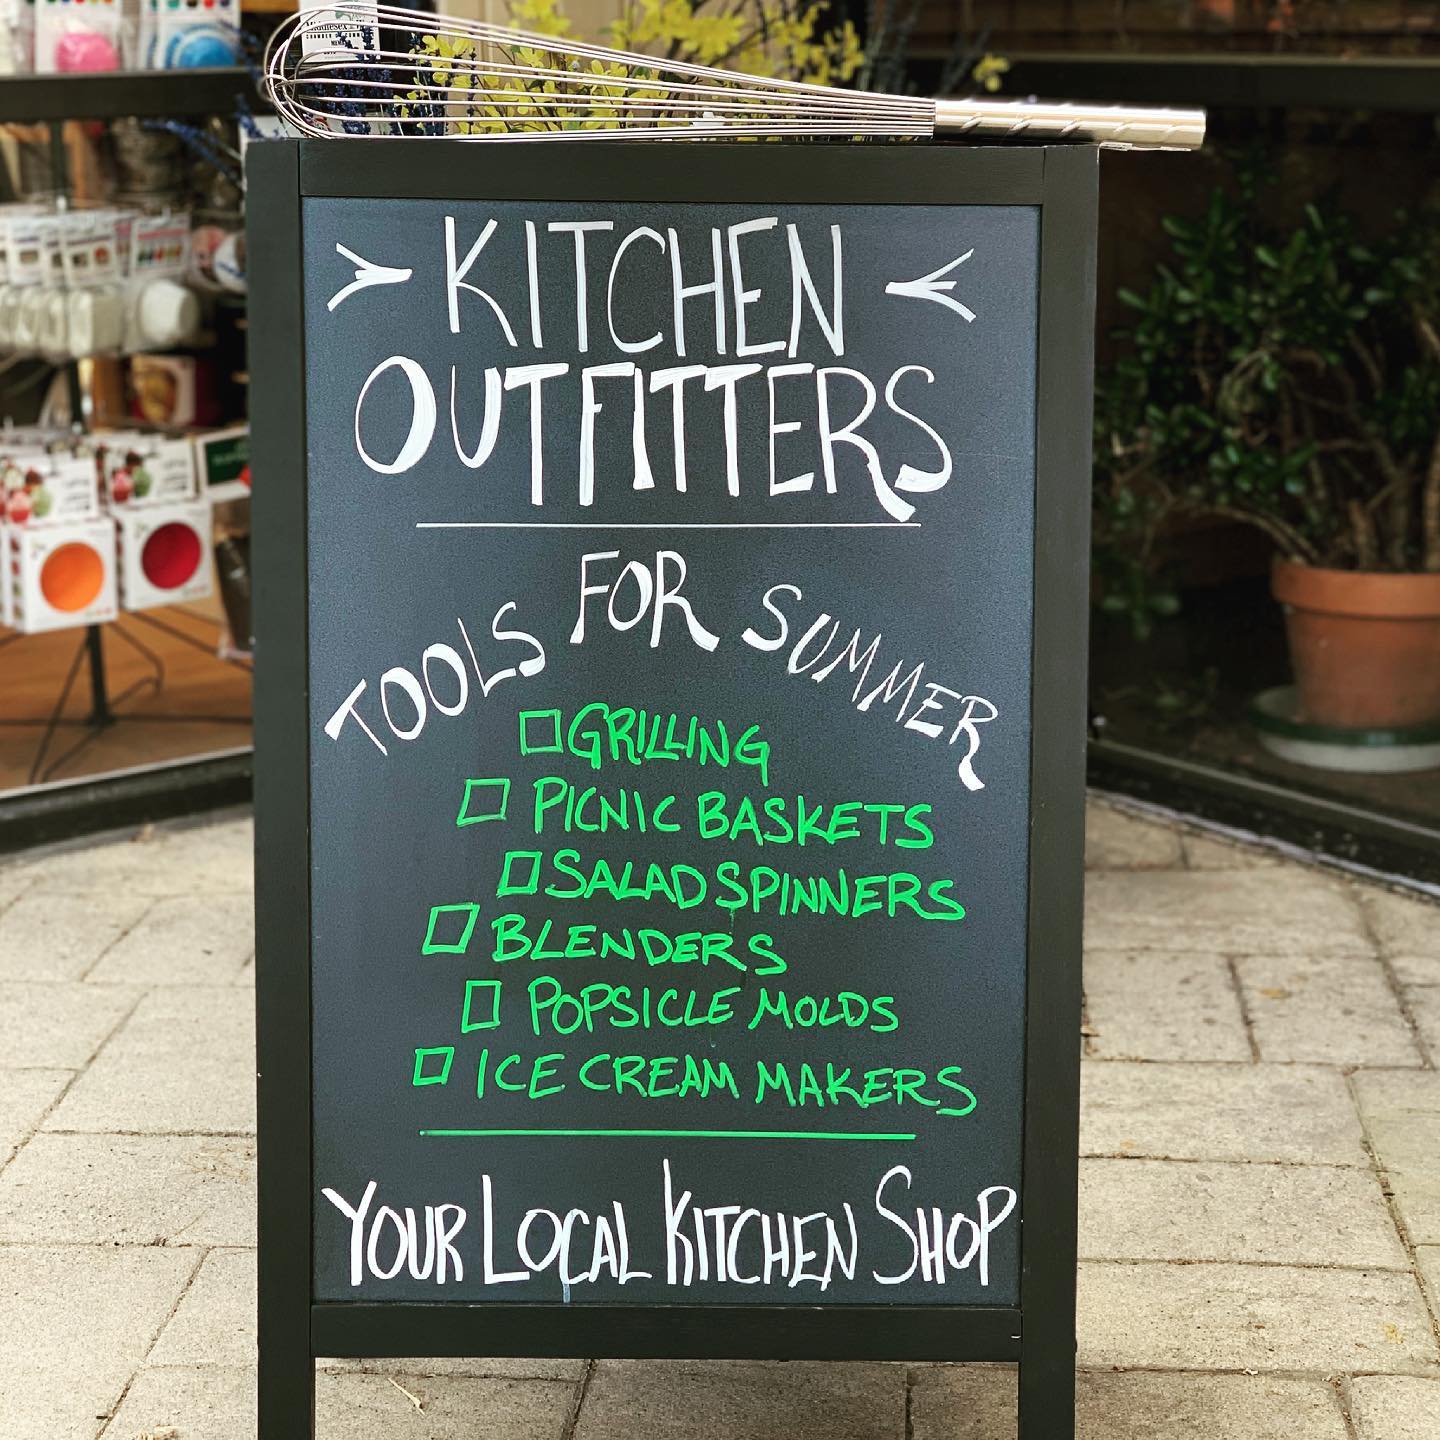 Middlesex
CHAMBER
KITCHEN
OUTFITTERS
TOOLS FOR SUMMER
GRILLING
PICNIC BASKETS
SALAD SPINNERS
BLENDERS
POPSICLE MOLDS
ICE CREAM MAKERS
YOUR LOCAL KITCHEN SHOP